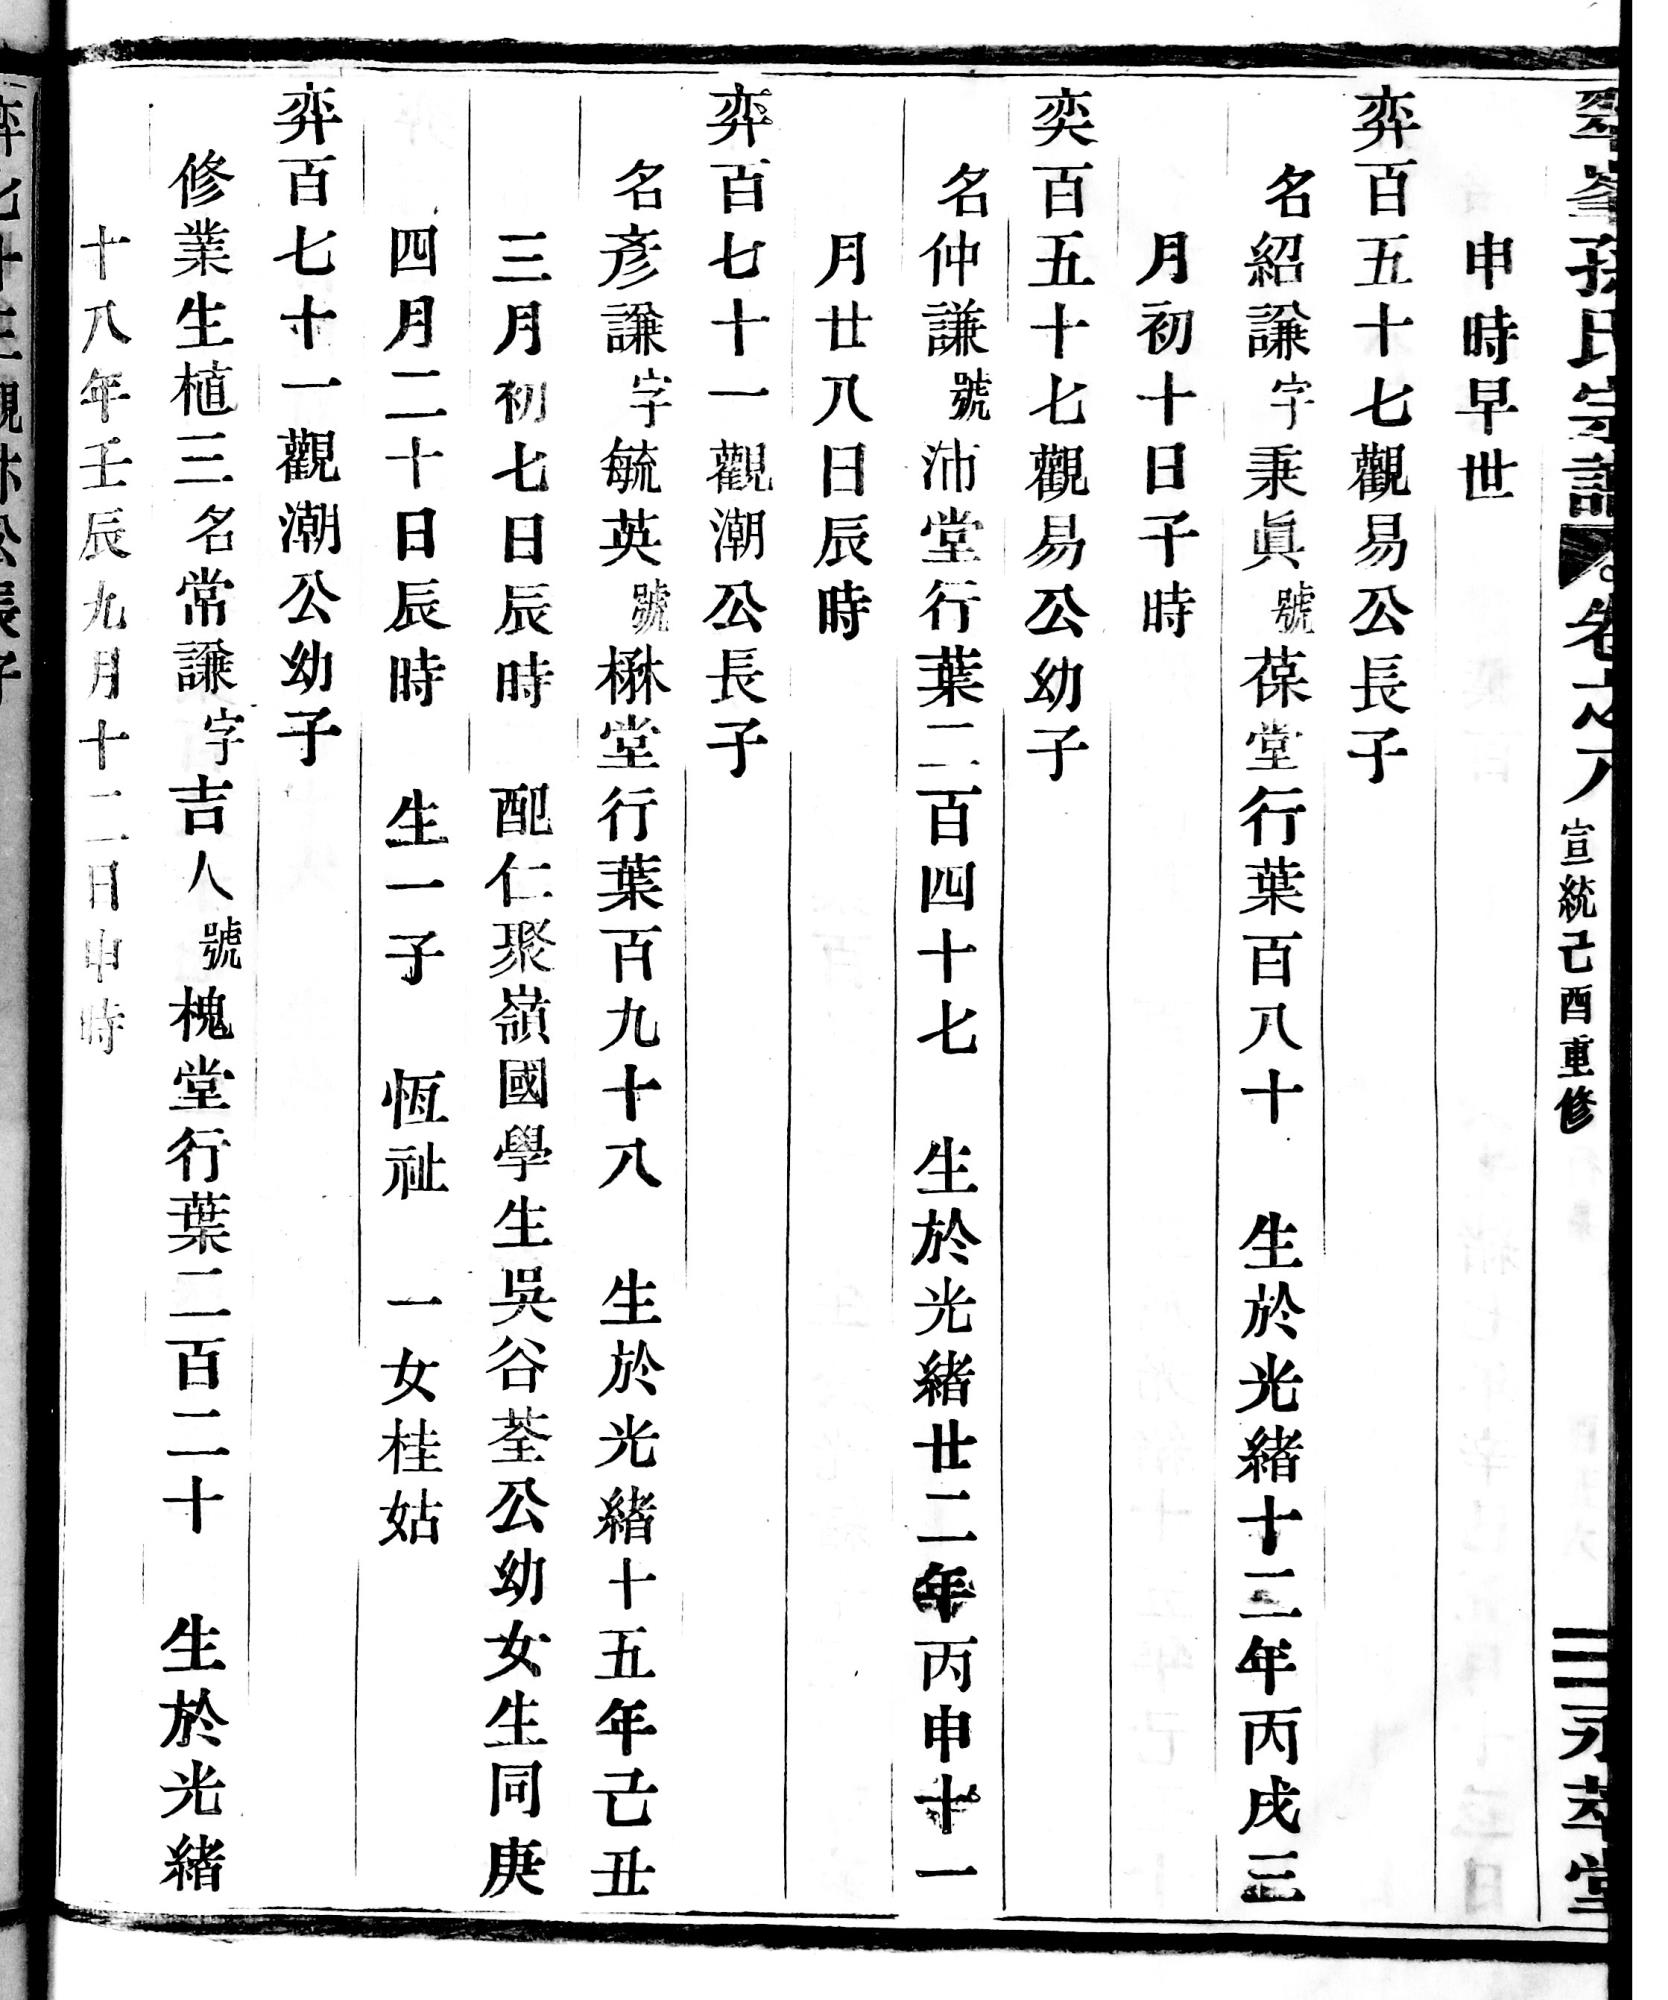 孫氏宗譜 卷之八 宣統己酉重修 三 永萃堂
申時早世
弈百五十七觀易公長子
名紹謙字秉眞號葆堂行葉百八十 生於光緒十二年丙戌三
月初十日子時
奕百五十七觀易公幼子
名仲謙號沛堂行葉二百四十七 生於光緒廿二年丙申十一
月廿八日辰時
弈百七十一觀潮公長子
名彥謙字毓英號楙堂行葉百九十八 生於光緒十五年己丑
三月初七日辰時 配仁聚嶺國學生吳谷荃公幼女生同庚
四月二十日辰時 生一子 恆祉 一女桂姑
弈百七十一觀潮公幼子
修業生植三名常謙字吉人號槐堂行葉二百二十 生於光緒
十八年壬辰九月十二日申時